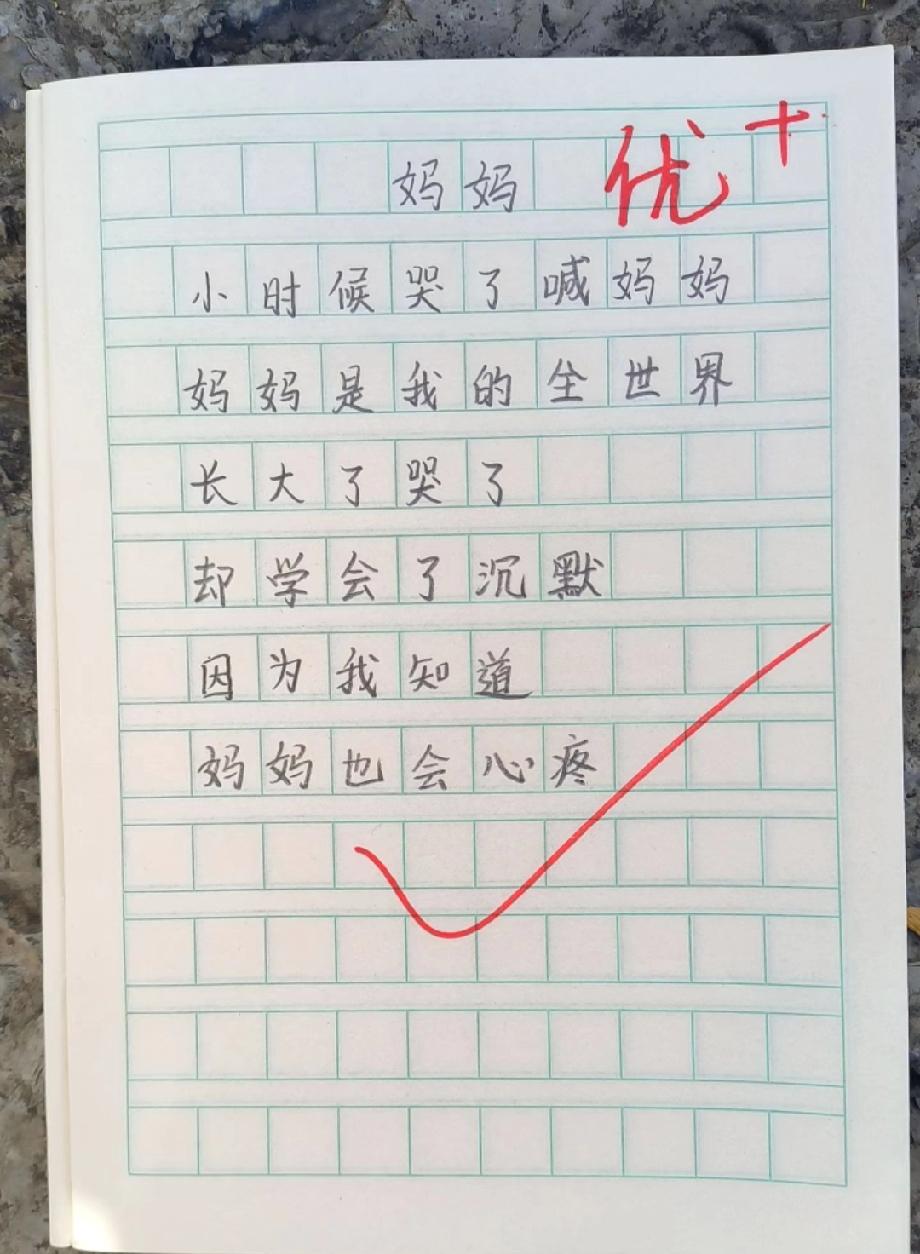 妈妈 优+
小时候哭了喊妈妈
妈妈是我的全世界
长大了哭了
却学会了沉默
因为我知道
妈妈也会心疼